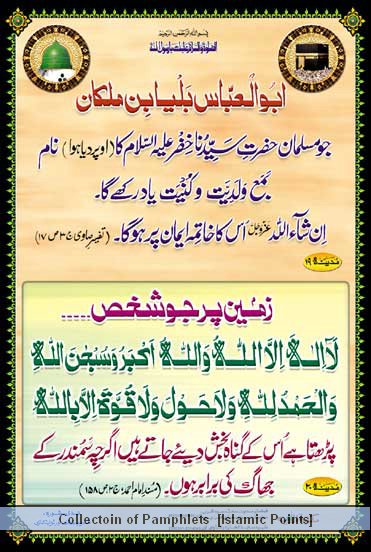 بِسْمِ اللهِ الرَّحْمٰنِ الرَّحِيْمِ
ابوالعبّاس بَلْیا بن ملکان
جو مسلمان حضرتِ سیِّدُنا خِضْر علیہ السّلام کا (اوپر دیا ہوا) نام
بَمَع وَلدِیَّت و کُنْیَت یاد رکھے گا۔
اِن شآءَ اللہ عَزَّوَجَلَّ اُس کا خاتِمہ ایمان پر ہوگا۔ (تفسیرِ صاوی ج ۳ ص ۱۷)
مدینہ ۱۹
زمین پر جو شخص.....
لَآ اِلٰہَ اِلَّا اللہُ وَاللہُ اَکْبَرُ وَسُبْحٰنَ اللہِ
وَالْحَمْدُ لِلّٰہِ وَلَا حَوْلَ وَلَا قُوَّۃَ اِلَّا بِاللہِ
پڑھتا ہے اُس کے گناہ بخش دیئے جاتے ہیں اگرچِہ سَمُندر کے
جھاگ کی برابر ہوں۔ (مُسندِ امام احمد، ج ۲ ص ۱۵۸)
مدینہ ۲۰
Collectoin of Pamphlets [Islamic Points]